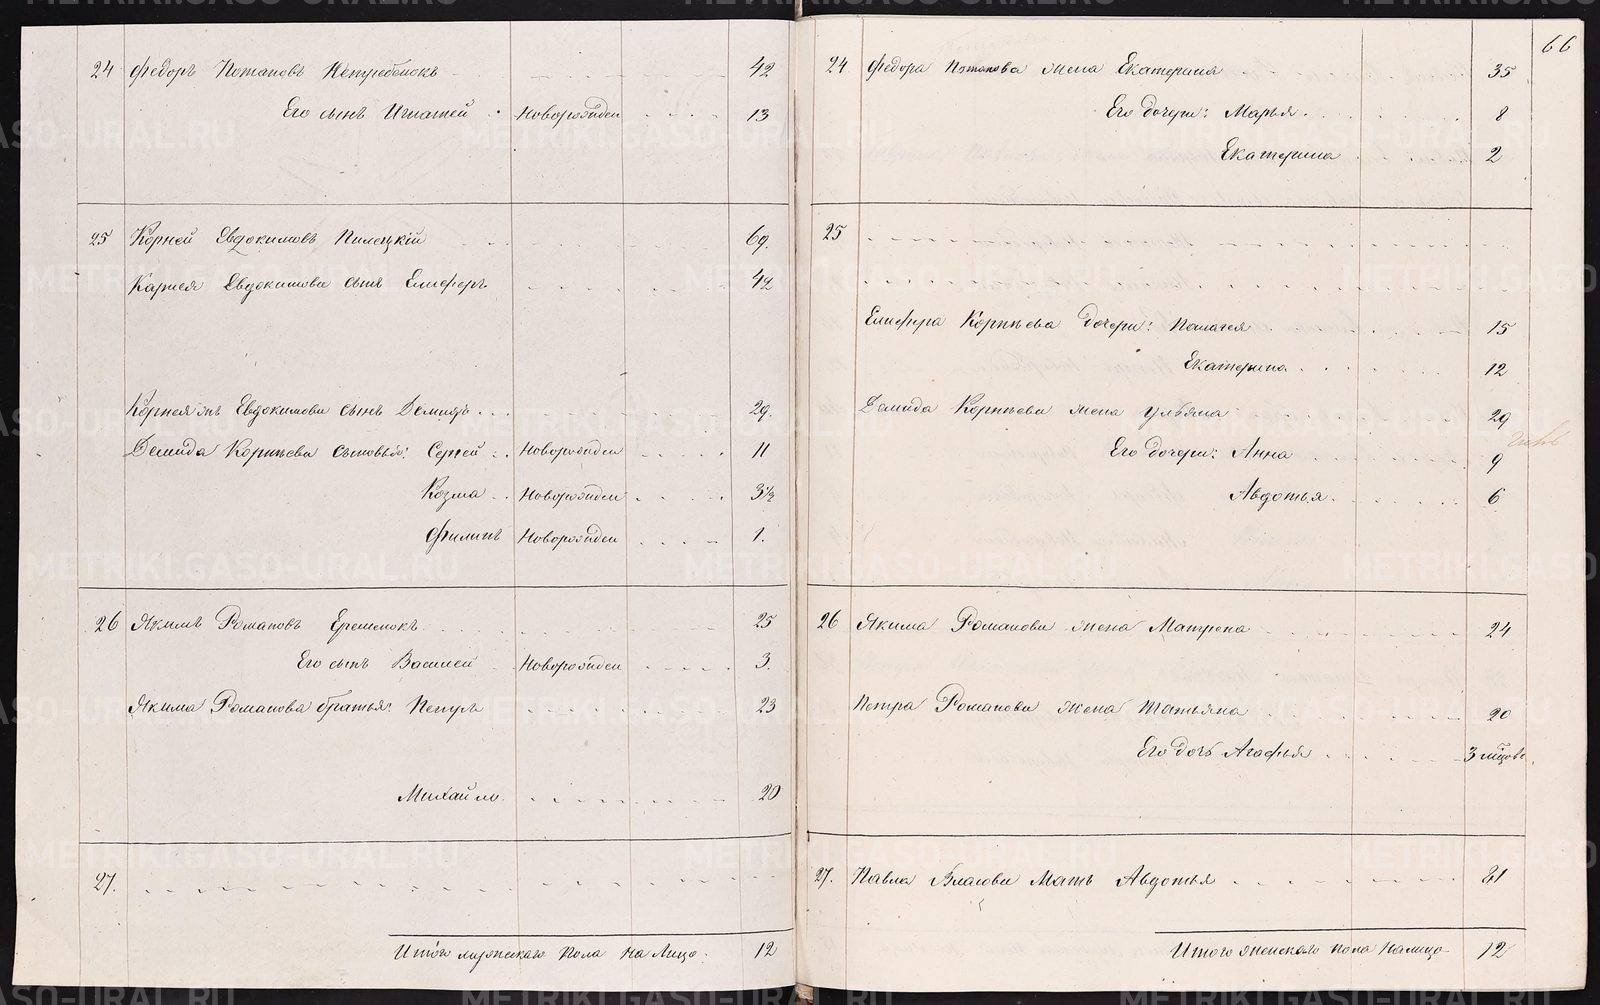 24 Федоръ Потаповъ 42
Его сынъ Игнатей Новорожден 13
25 Корней Евдокимовъ Пилецкій 69.
Корнея Евдокимова сынъ Елисферъ 42
Корнея Евдокимова сынъ Демидъ 29.
Демида Корнѣева сыновья: Сергей Новорожден 11
Козма Новорожден 3½
Филипъ Новорожден 1.
26 Якимъ Романовъ Еременокъ 25
Его сынъ Василей Новорожден 3.
Якима Романова братья: Петръ 23
Михайло 20
27.
Итого мужескаго пола на лицо. 12
66
24 Федора Потапова жена Екатерина 35
Его дочери: Марья 8
Екатерина 2
25
Елисфера Корнѣева дочери: Палагея 15
Екатерина 12
Демида Корнѣева жена Ульяна 29
Его дочери: Анна 9
Авдотья 6
26 Якима Романова жена Матрена 24
Петра Романова жена Татьяна 20
Его дочь Агафья 3 мцовъ.
27. Павла Власова мать Авдотья 81
Итого женскаго пола налицо 12
METRIKI.GASO-URAL.RU